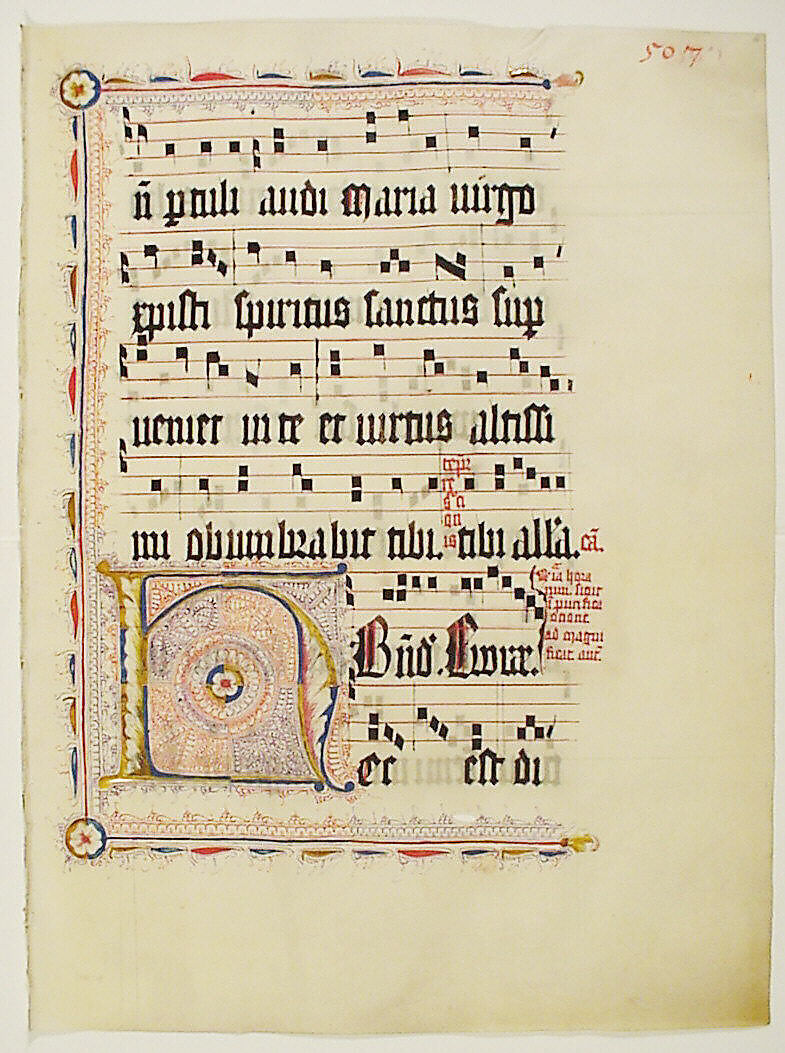 507
n̄ ꝑtuli audi maria uirgo
xpisti spiritus sanctus suꝑ
ueniet in te et uirtus altissi
mi obumbrabit tibi. tibi all'a. ca.
Bn̄d'. Euouae.
ec est di